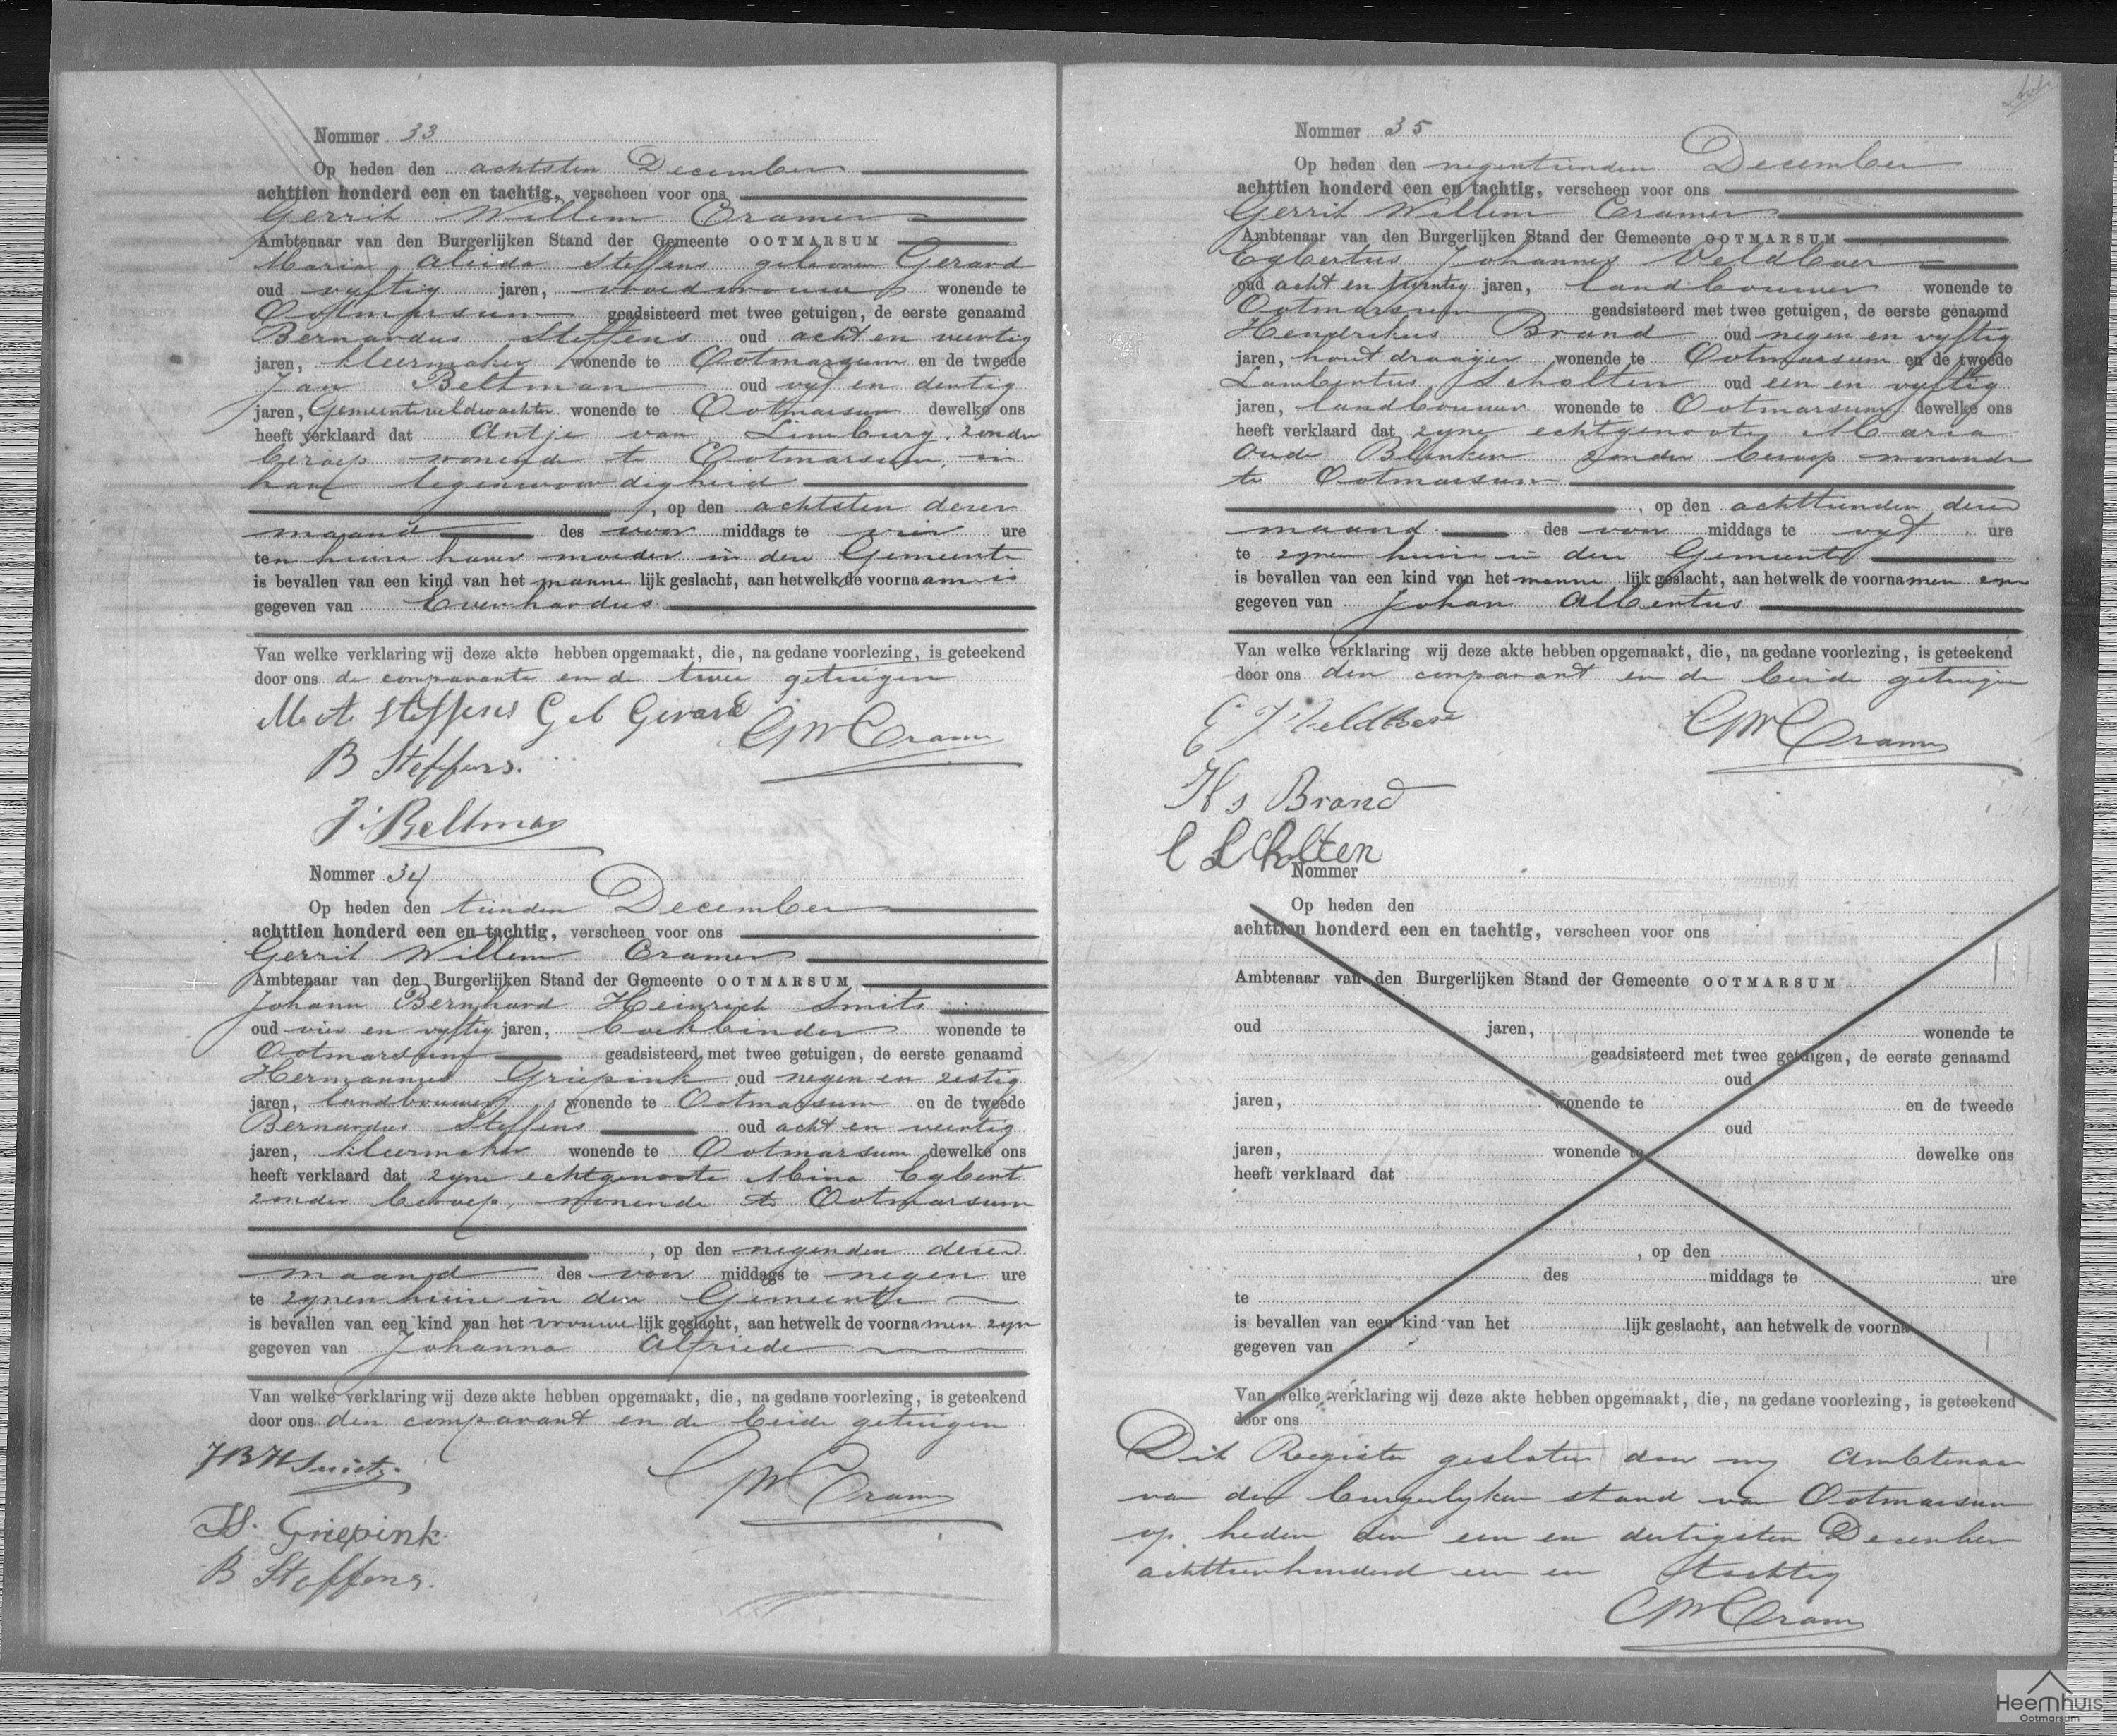 Nommer 33
Op heden den achtsten December
achttien honderd een en tachtig, verscheen voor ons
Gerrit Willem Cramer
Ambtenaar van den Burgerlijken Stand der Gemeente OOTMARSUM
Maria Aleida Steffens geboren Gerard
oud vyftig jaren, vroedvrouw wonende te
Ootmarsum geadsisteerd met twee getuigen, de eerste genaamd
Bernardus Steffens oud acht en veertig
jaren, kleermaker wonende te Ootmarsum en de tweede
Jan Beltman oud vyf en dertig
jaren, Gemeenteveldwachter wonende te Ootmarsum dewelke ons
heeft verklaard dat Antje van Limburg, zonder
beroep wonende te Ootmarsum, in
hare tegenwoordigheid
, op den achtsten dezer
maand des voor middags te vier ure
ten huize harer moeder in den Gemeente
is bevallen van een kind van het manne lijk geslacht, aan hetwelk de voornaam is
gegeven van Everhardus
Van welke verklaring wij deze akte hebben opgemaakt, die, na gedane voorlezing, is geteekend
door ons de comparante en de twee getuigen
M A Steffens Geb Gerard GWCramer
B Steffens.
J. Beltman
Nommer 34
Op heden den tienden December
achttien honderd een en tachtig, verscheen voor ons
Gerrit Willem Cramer
Ambtenaar van den Burgerlijken Stand der Gemeente OOTMARSUM
Johann Bernhard Heinrich Smits
oud vier en vyftig jaren, boekbinder wonende te
Ootmarsum geadsisteerd met twee getuigen, de eerste genaamd
Hermannus Griepink oud negen en zestig
jaren, landbouwer wonende te Ootmarsum en de tweede
Bernardus Steffens oud acht en veertig
jaren, kleermaker wonende te Ootmarsum dewelke ons
heeft verklaard dat zyne echtgenoote Mina Egbert
zonder beroep, wonende te Ootmarsum
, op den negenden dezer
maand des voor middags te negen ure
te zynen huize in den Gemeente
is bevallen van een kind van het vrouwe lijk geslacht, aan hetwelk de voornamen zyn
gegeven van Johanna Alfriede
Van welke verklaring wij deze akte hebben opgemaakt, die, na gedane voorlezing, is geteekend
door ons den comparant en de beide getuigen
JBH Smits. GWCramer
H. Griepink.
B Steffens.
Nommer 35
Op heden den negentienden December
achttien honderd een en tachtig, verscheen voor ons
Gerrit Willem Cramer
Ambtenaar van den Burgerlijken Stand der Gemeente OOTMARSUM
Egbertus Johannes Veldboer
oud acht en twintig jaren, landbouwer wonende te
Ootmarsum geadsisteerd met twee getuigen, de eerste genaamd
Hendrikus Brand oud negen en vyftig
jaren, houtdraayer wonende te Ootmarsum en de tweede
Lambertus Scholten oud een en vyftig
jaren, landbouwer wonende te Ootmarsum dewelke ons
heeft verklaard dat zyne echtgenoote Maria
Oude Blenken zonder beroep wonende
te Ootmarsum
, op den achttienden dezer
maand des voor middags te vyf ure
te zynen huize in den Gemeente
is bevallen van een kind van het manne lijk geslacht, aan hetwelk de voornamen zyn
gegeven van Johan Albertus
Van welke verklaring wij deze akte hebben opgemaakt, die, na gedane voorlezing, is geteekend
door ons den comparant en de beide getuigen
E J Veldboer GWCramer
Hs Brand
L Scholten
Nommer
Op heden den
achttien honderd een en tachtig, verscheen voor ons
Ambtenaar van den Burgerlijken Stand der Gemeente OOTMARSUM
oud jaren, wonende te
geadsisteerd met twee getuigen, de eerste genaamd
oud
jaren, wonende te en de tweede
oud
jaren, wonende te dewelke ons
heeft verklaard dat
, op den
des middags te ure
te
is bevallen van een kind van het lijk geslacht, aan hetwelk de voorna
gegeven van
Van welke verklaring wij deze akte hebben opgemaakt, die, na gedane voorlezing, is geteekend
door ons
Dit Register gesloten door my Ambtenaar
van den burgerlyken stand van Ootmarsum
op heden den een en dertigsten December
achttienhonderd een en tachtig
GWCramer
Heemhuis
Ootmarsum